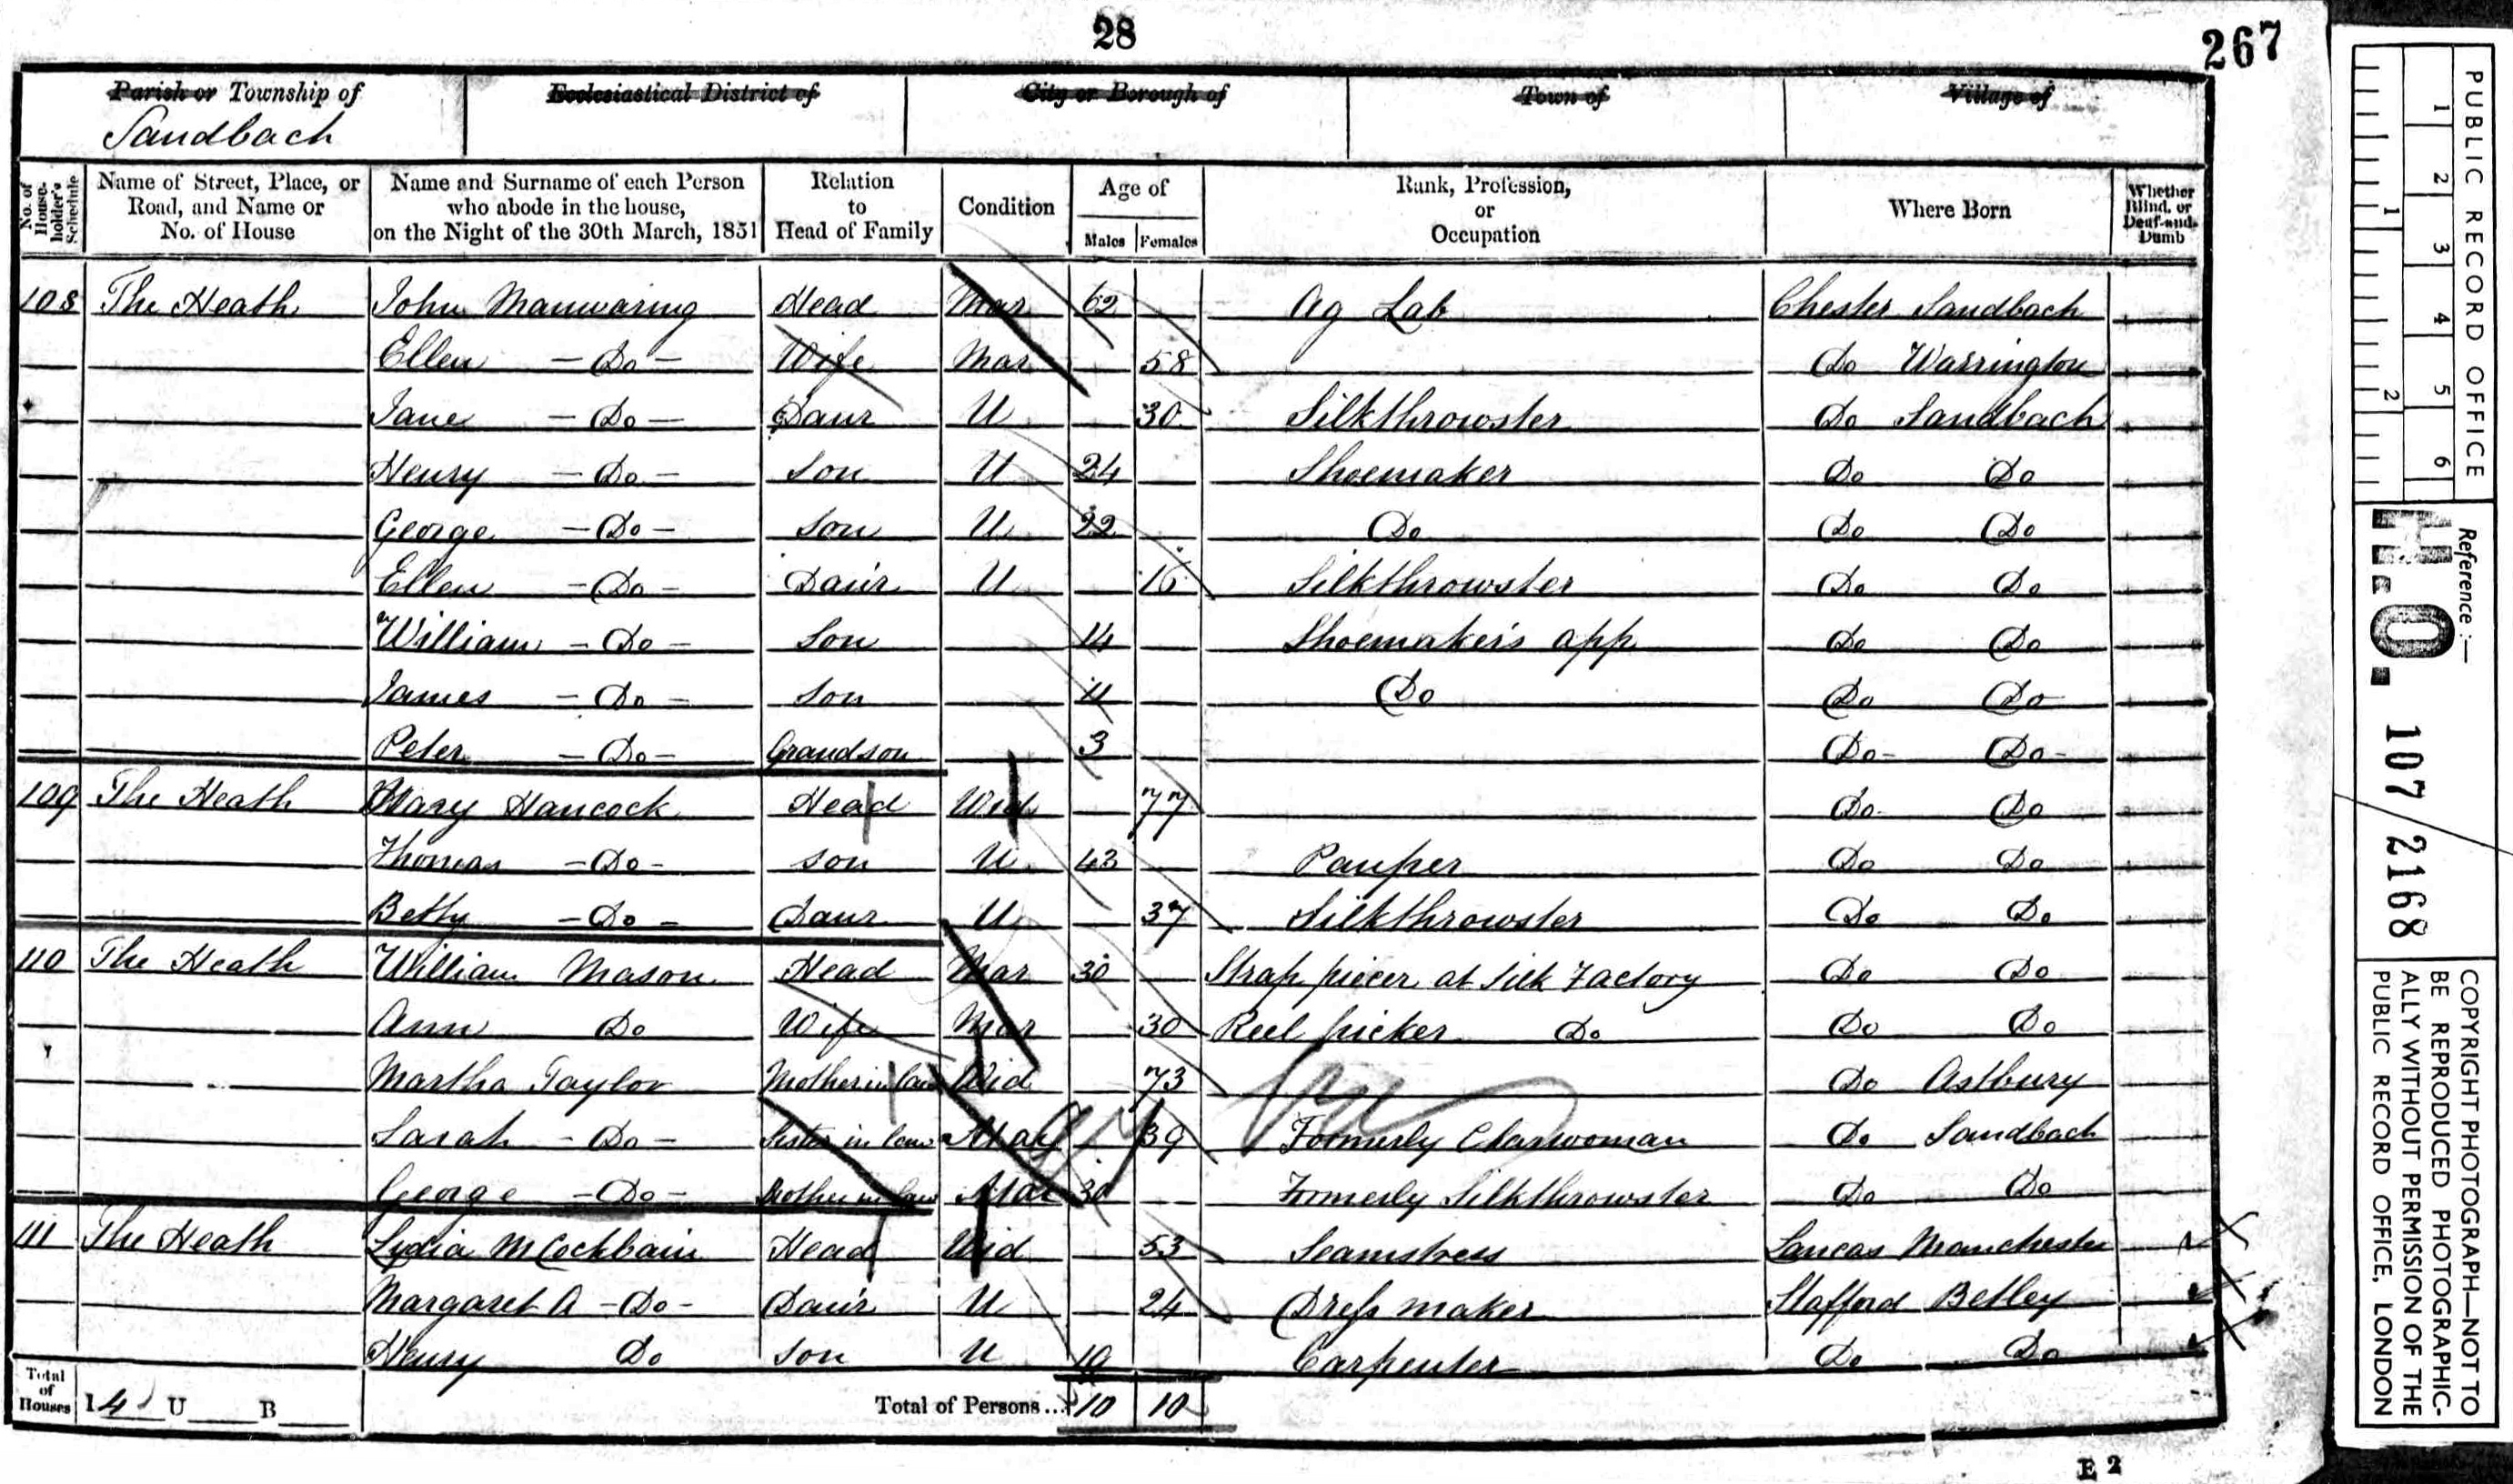 28
267
Parish or Township of
Ecclesiastical District of
City or Borough of
Town of
Village of
Sandbach
No. of House-holder's Schedule
Name of Street, Place, or Road, and Name or No. of House
Name and Surname of each Person who abode in the house, on the Night of the 30th March, 1851
Relation to Head of Family
Condition
Age of
Males
Females
Rank, Profession, or Occupation
Where Born
Whether Blind, or Deaf-and-Dumb
108 The Heath John Manwaring Head Mar 62 Ag Lab Chester Sandbach
Ellen - Do - Wife Mar 58 Do Warrington
Jane - Do - Daur U 30 Silkthrowster Do Sandbach
Henry - Do - Son U 24 Shoemaker Do Do
George - Do - Son U 22 Do Do Do
Ellen - Do - Daur U 16 Silkthrowster Do Do
William - Do - Son 14 Shoemaker's app Do Do
James - Do - Son 11 Do Do Do
Peter - Do - Grandson 3 Do - Do -
109 The Heath Mary Hancock Head Wid 77 Do Do
Thomas - Do - Son U 43 Pauper Do Do
Betty - Do - Daur U 37 Silkthrowster Do Do
110 The Heath William Mason Head Mar 30 Strap piecer at Silk Factory Do Do
Ann Do Wife Mar 30 Reel picker Do Do Do
Martha Taylor Mother in law Wid 73 Do Astbury
Sarah - Do - Sister in law Mar 39 Formerly Charwoman Do Sandbach
George - Do - Brother in law Mar 30 Formerly Silkthrowster Do Do
111 The Heath Lydia McCockbain Head Wid 53 Seamstress Lancas Manchester
Margaret A - Do - Daur U 24 Dress maker Stafford Betley
Henry Do Son U 19 Carpenter Do Do
Total of Houses I 4 U B
Total of Persons... 10 10
E 2
PUBLIC RECORD OFFICE
1 2 3 4 5 6
1 2
Reference:—
H.O. 107/2168
COPYRIGHT PHOTOGRAPH—NOT TO
BE REPRODUCED PHOTOGRAPHIC-
ALLY WITHOUT PERMISSION OF THE
PUBLIC RECORD OFFICE, LONDON